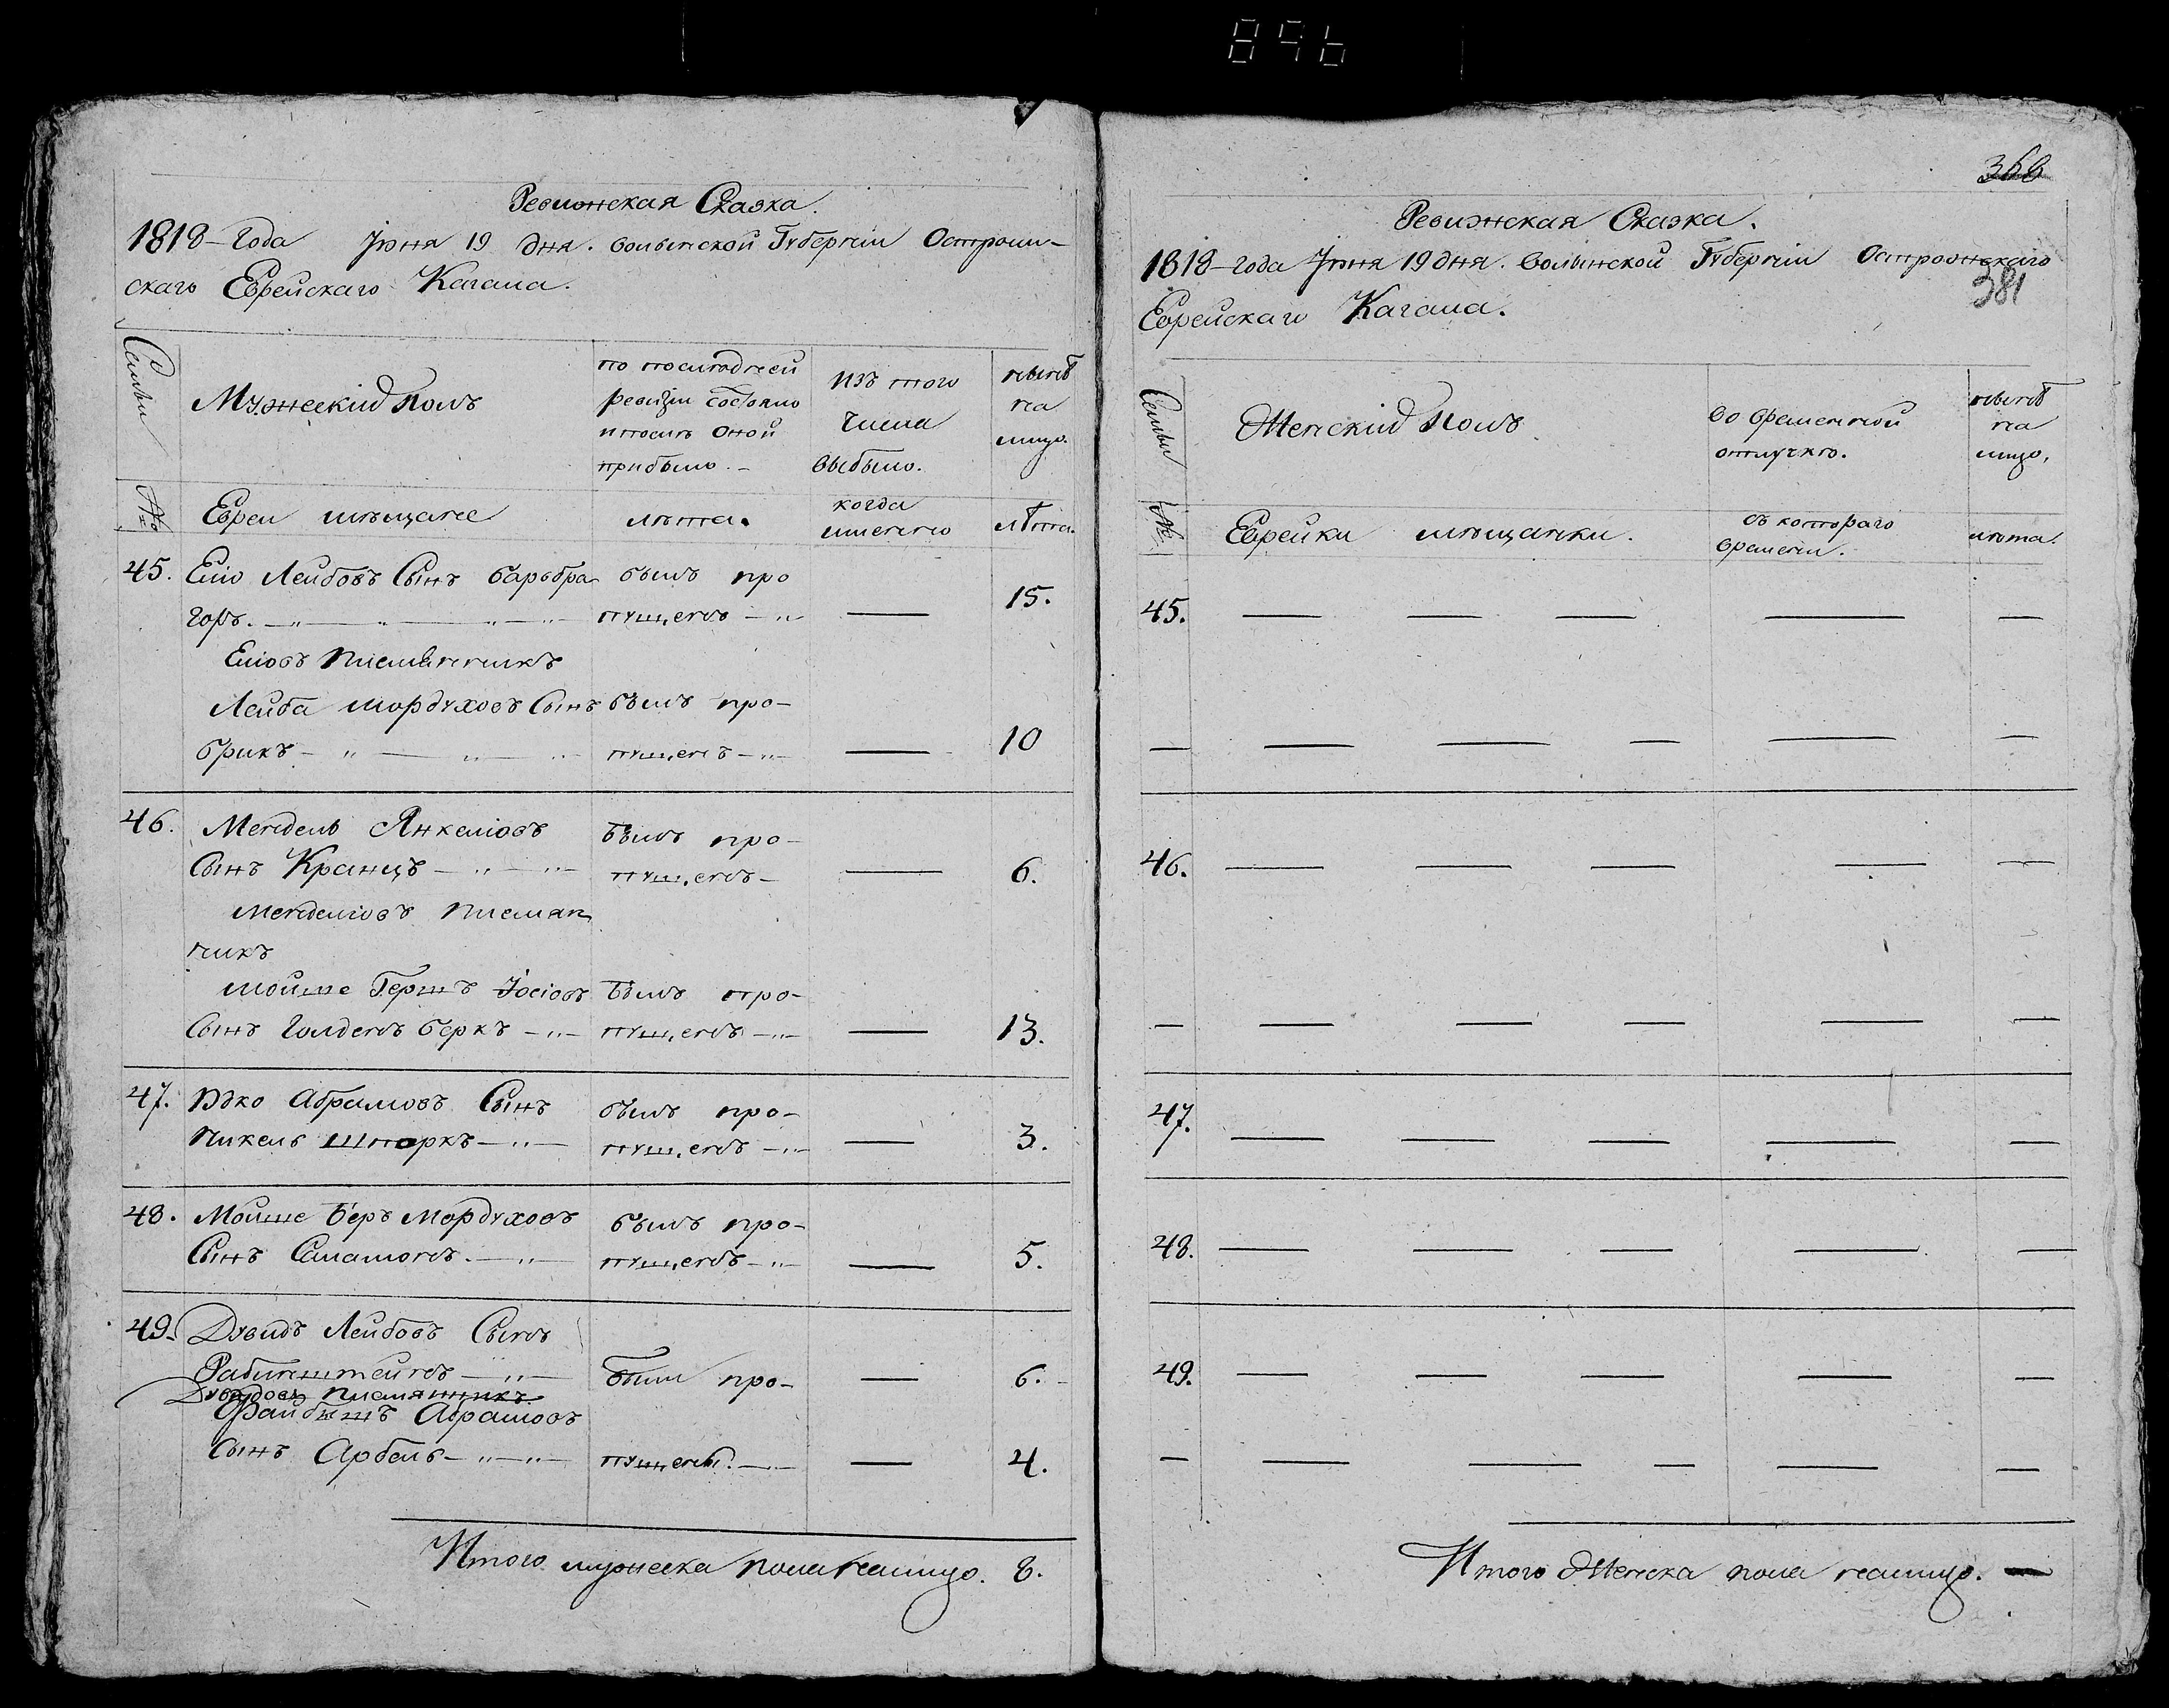 896
Ревижская Сказка.
1818-Года Іюня 19 дня. волынской Губерніи Острож-
скаго Еврейскаго Кагала.
Семьи
Мужескій полъ
по последней
ревизіи Состояло
и после оной
прибыло. -
изъ того
числа
выбыло.
ныне
на
лицо.
№
Евреи мещане
лета.
когда
именно
лета.
45. Еліо Лейбовъ Сынъ барабра былъ про
горъ. пущенъ — 15.
Еліовъ племянникъ
Лейба мордуховъ Сынъ былъ про-
брикъ пущенъ — 10
46. Мендель Янкеліовъ былъ про-
Сынъ Кранцъ пущенъ — 6.
Менделіовъ племян
никъ
мойше Гершъ Іосіовъ былъ про-
Сынъ Голденъ беркъ пущенъ — 13.
47. Юдко Абрамовъ Сынъ былъ про-
Пикель Шторкъ пущенъ — 3.
48. Мойше беръ мордуховъ былъ про-
Сынъ Саламонъ. пущенъ — 5.
49. Дувидъ Лейбовъ Сынъ
Рабинштейнъ были про- — 6.
Дувидовъ племянникъ
Файбишъ Абрамовъ
Сынъ Арбель пущены. — 4.
Итого мужеска пола налицо. 8.
366
Ревижская Сказка.
1818-года Іюня 19 дня. Волынской Губерніи Острожскаго
381
Еврейскаго Кагала.
Семьи
Женскій полъ
во временной
отлучке.
ныне
на
лицо.
№
Еврейки мещанки.
съ котораго
времени.
лета.
45. — — — — —
— — — — — —
46. — — — — —
— — — — — —
47. — — — — —
48. — — — — —
49. — — — — —
— — — — — —
Итого Женска пола налицо. —